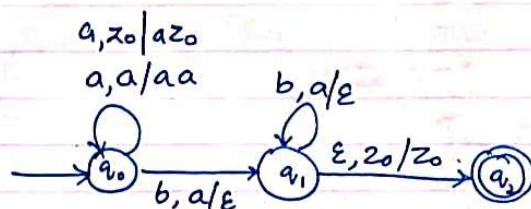 a, z₀|az₀
a, a/aa
b, a/ε
q₀
b, a/ε
q₁
ε, z₀/z₀
q₂